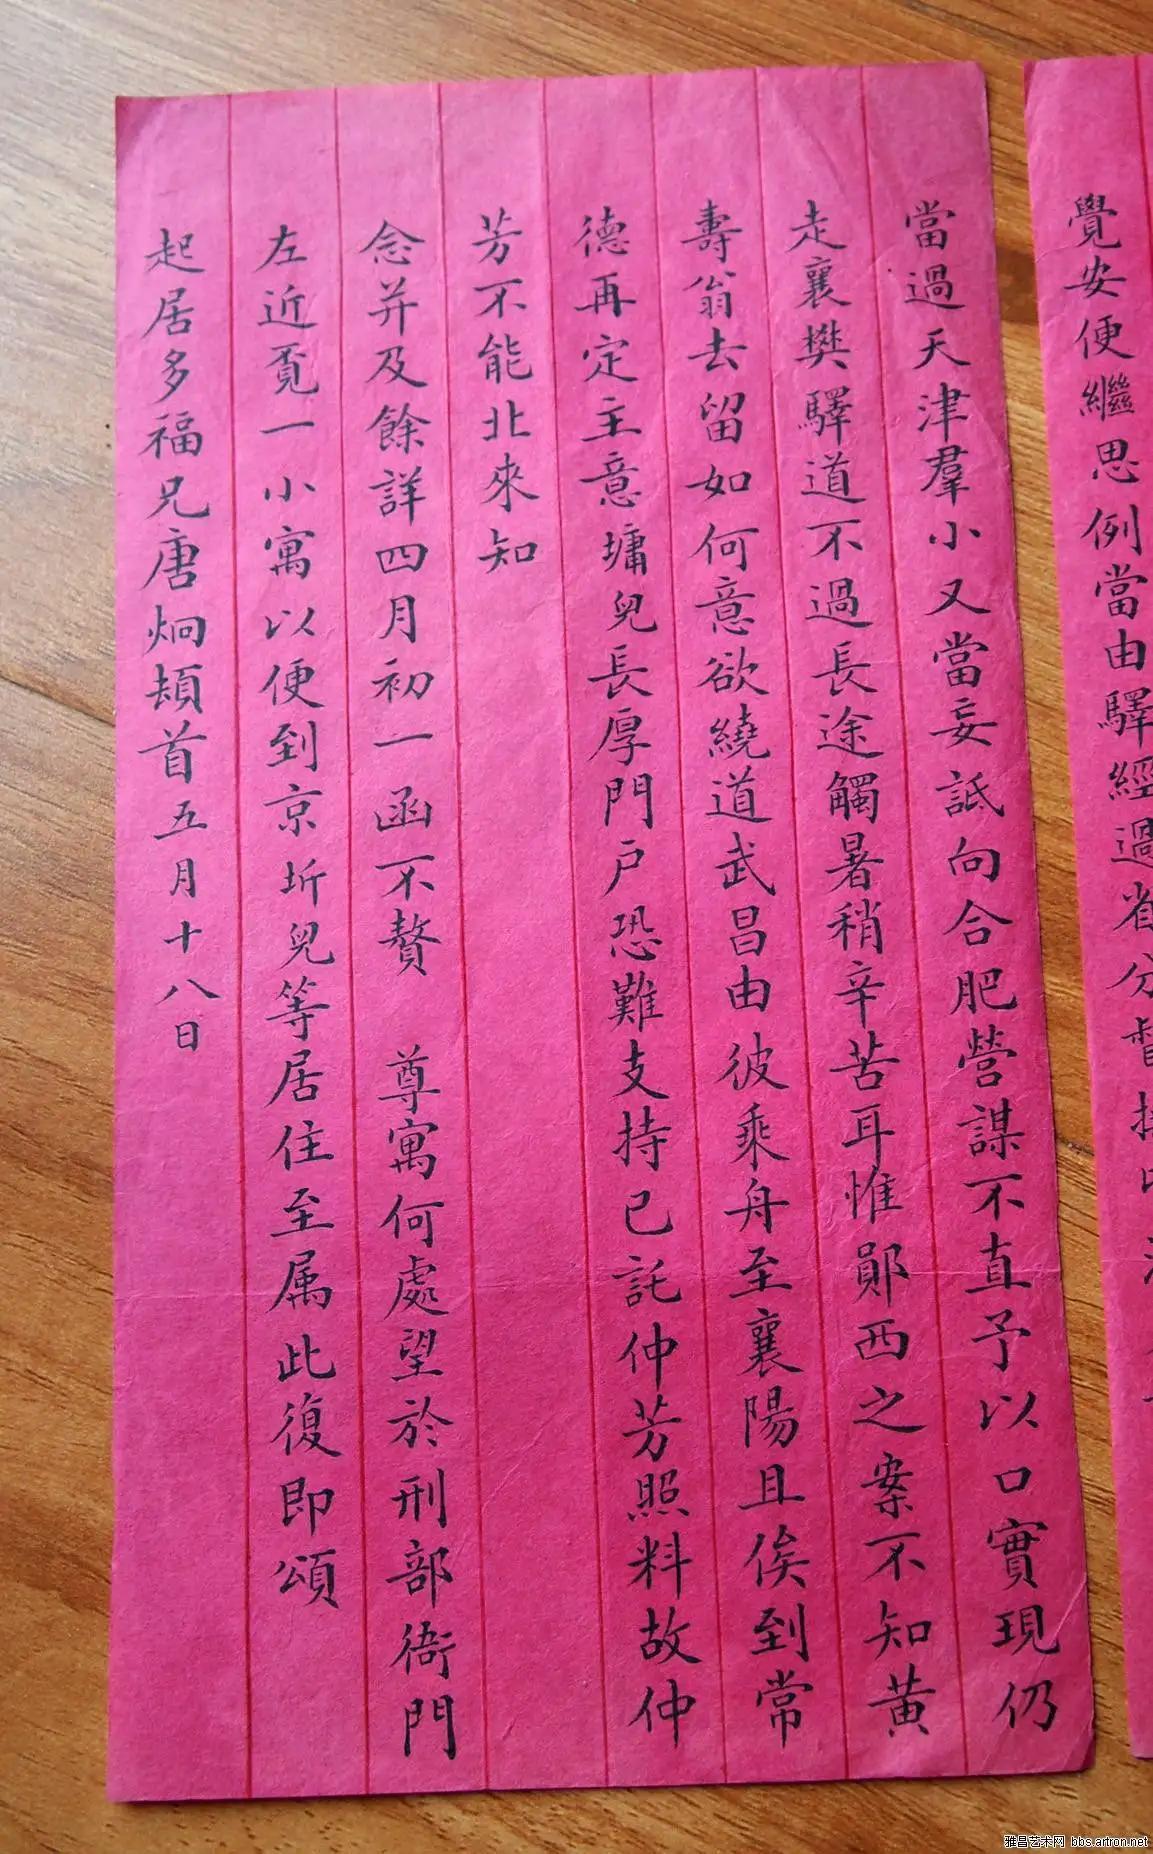 覺安便繼思例當由驛經過省分督
當過天津羣小又當妄詆向合肥營謀不直予以口實現仍
走襄樊驛道不過長途觸暑稍辛苦耳惟鄖西之案不知黃
壽翁去留如何意欲繞道武昌由彼乘舟至襄陽且俟到常
德再定主意墉兒長厚門戶恐難支持已託仲芳照料故仲
芳不能北來知
念并及餘詳四月初一函不贅 尊寓何處望於刑部衙門
左近覓一小寓以便到京圻兒等居住至属此復即頌
起居多福兄唐炯頓首五月十八日
雅昌艺术网 bbs.artron.net